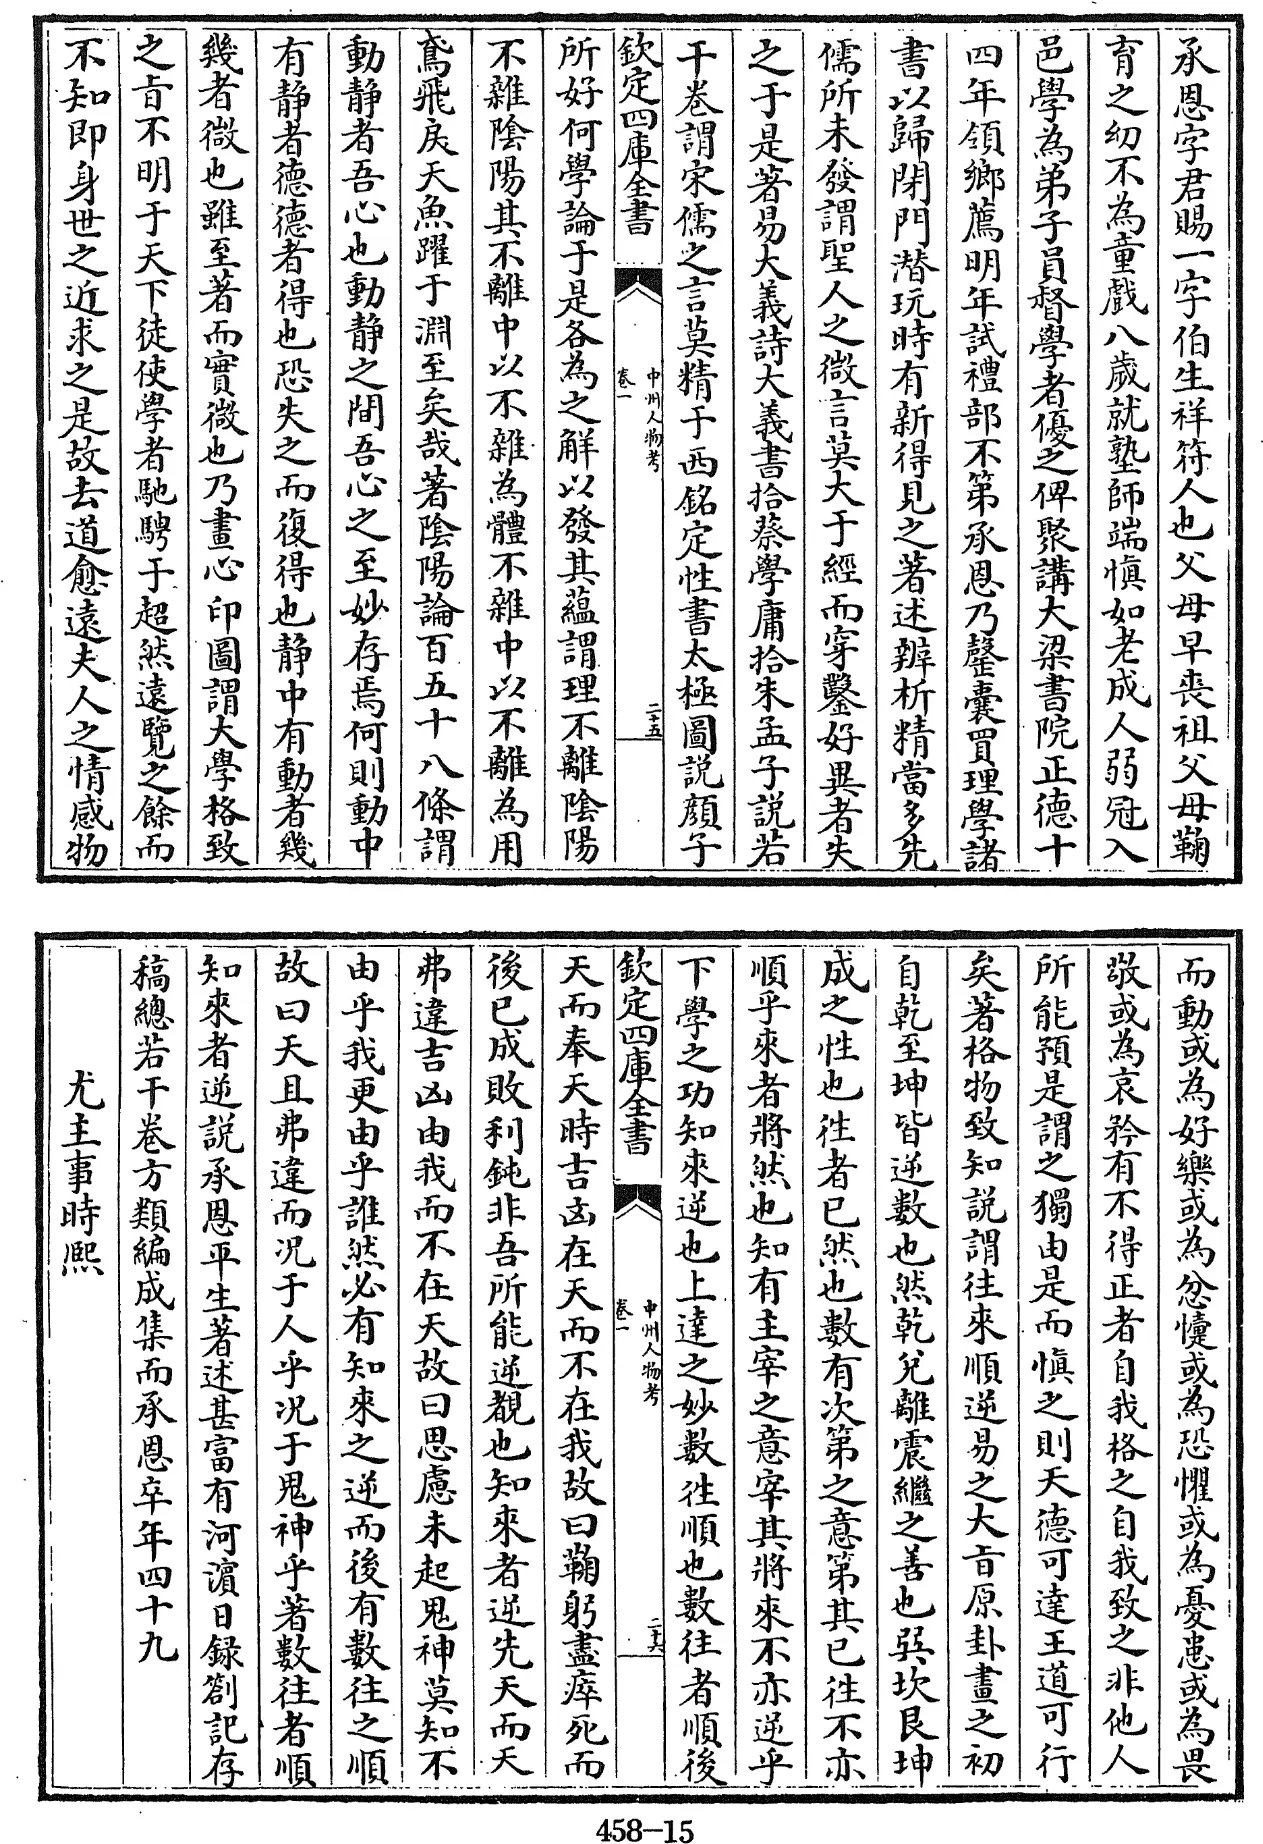 承恩字君賜一字伯生祥符人也父母早喪祖父母鞠
育之幼不為童戲八歲就塾師端慎如老成人弱冠入
邑學為弟子員督學者優之俾聚講大梁書院正德十
四年領鄉薦明年試禮部不第承恩乃罄囊買理學諸
書以歸閉門潛玩時有新得見之著述辨析精當多先
儒所未發謂聖人之微言莫大于經而穿鑿好異者失
之于是著易大義詩大義書拾蔡學庸拾朱孟子說若
干卷謂宋儒之言莫精于西銘定性書太極圖說顏子
欽定四庫全書
中州人物考
卷一
二十五
所好何學論于是各為之解以發其蘊謂理不離陰陽
不雜陰陽其不離中以不雜為體不雜中以不離為用
鳶飛戾天魚躍于淵至矣哉著陰陽論百五十八條謂
動静者吾心也動静之間吾心之至妙存焉何則動中
有静者德德者得也恐失之而復得也静中有動者幾
幾者微也雖至著而實微也乃畫心印圖謂大學格致
之旨不明于天下徒使學者馳騁于超然遠覽之餘而
不知即身世之近求之是故去道愈遠夫人之情感物
而動或為好樂或為忿懥或為恐懼或為憂患或為畏
敬或為哀矜有不得正者自我格之自我致之非他人
所能預是謂之獨由是而慎之則天德可達王道可行
矣著格物致知說謂往來順逆易之大旨原卦畫之初
自乾至坤皆逆數也然乾兌離震繼之善也巽坎艮坤
成之性也往者已然也數有次第之意第其已往不亦
順乎來者將然也知有主宰之意宰其將來不亦逆乎
下學之功知來逆也上達之妙數往順也數往者順後
欽定四庫全書
中州人物考
卷一
二十六
天而奉天時吉凶在天而不在我故曰鞠躬盡瘁死而
後已成敗利鈍非吾所能逆覩也知來者逆先天而天
弗違吉凶由我而不在天故曰思慮未起鬼神莫知不
由乎我更由乎誰然必有知來之逆而後有數往之順
故曰天且弗違而況于人乎況于鬼神乎著數往者順
知來者逆說承恩平生著述甚富有河濵日録劄記存
稿總若干卷方類編成集而承恩卒年四十九
尤主事時熙
458-15